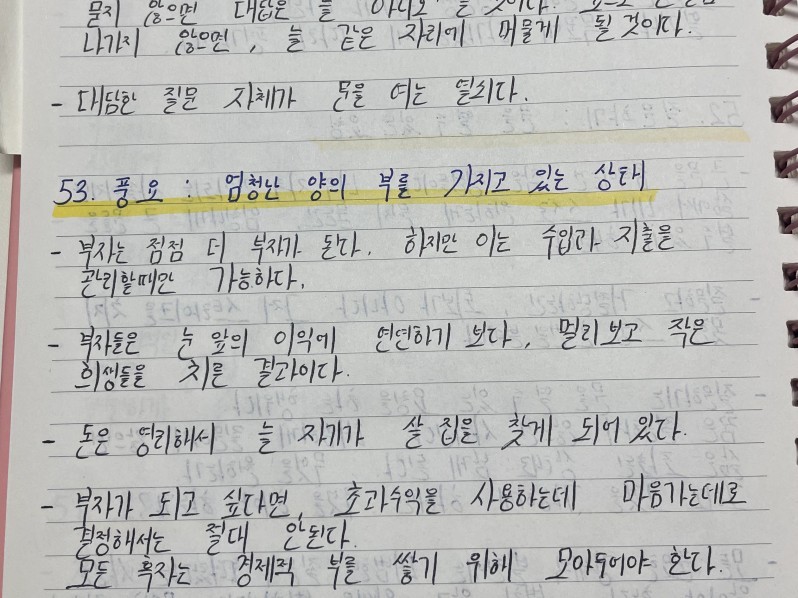 묻지 않으면 대답은 늘 아니오 일 것이다.
나가지 않으면, 늘 같은 자리에 머물게 될 것이다.
- 대담한 질문 자체가 문을 여는 열쇠다.
53. 풍요 : 엄청난 양의 부를 가지고 있는 상태
- 부자는 점점 더 부자가 된다. 하지만 이는 수입과 지출을
관리할때만 가능하다.
- 부자들은 눈 앞의 이익에 연연하기 보다, 멀리보고 작은
희생들을 치른 결과이다.
- 돈은 영리해서 늘 자기가 살 집을 찾게 되어 있다.
- 부자가 되고 싶다면, 초과수익을 사용하는데 마음가는데로
결정해서는 절대 안된다.
모든 흑자는 경제적 부를 쌓기 위해 모아두어야 한다.